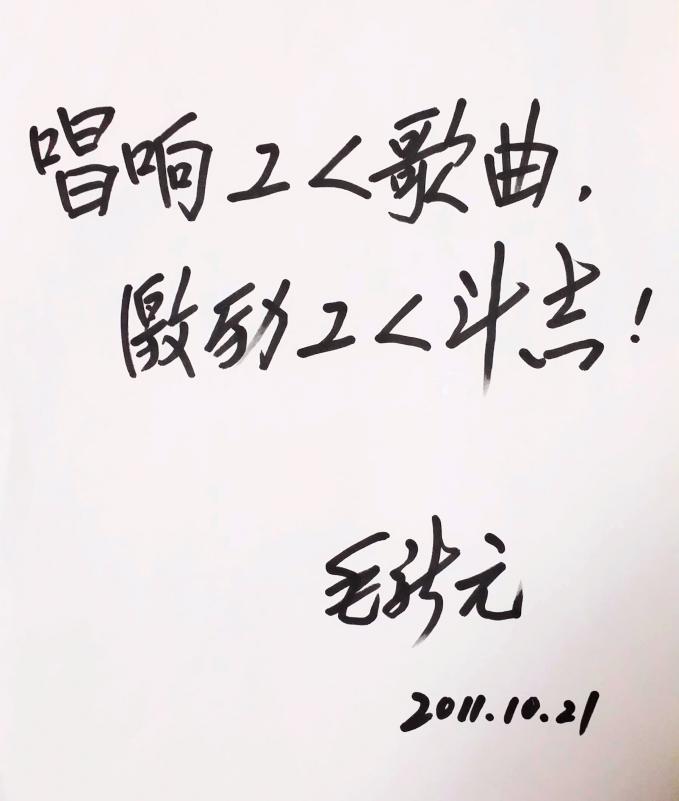 唱响工人歌曲，
激励工人斗志！
毛新元
2011.10.21